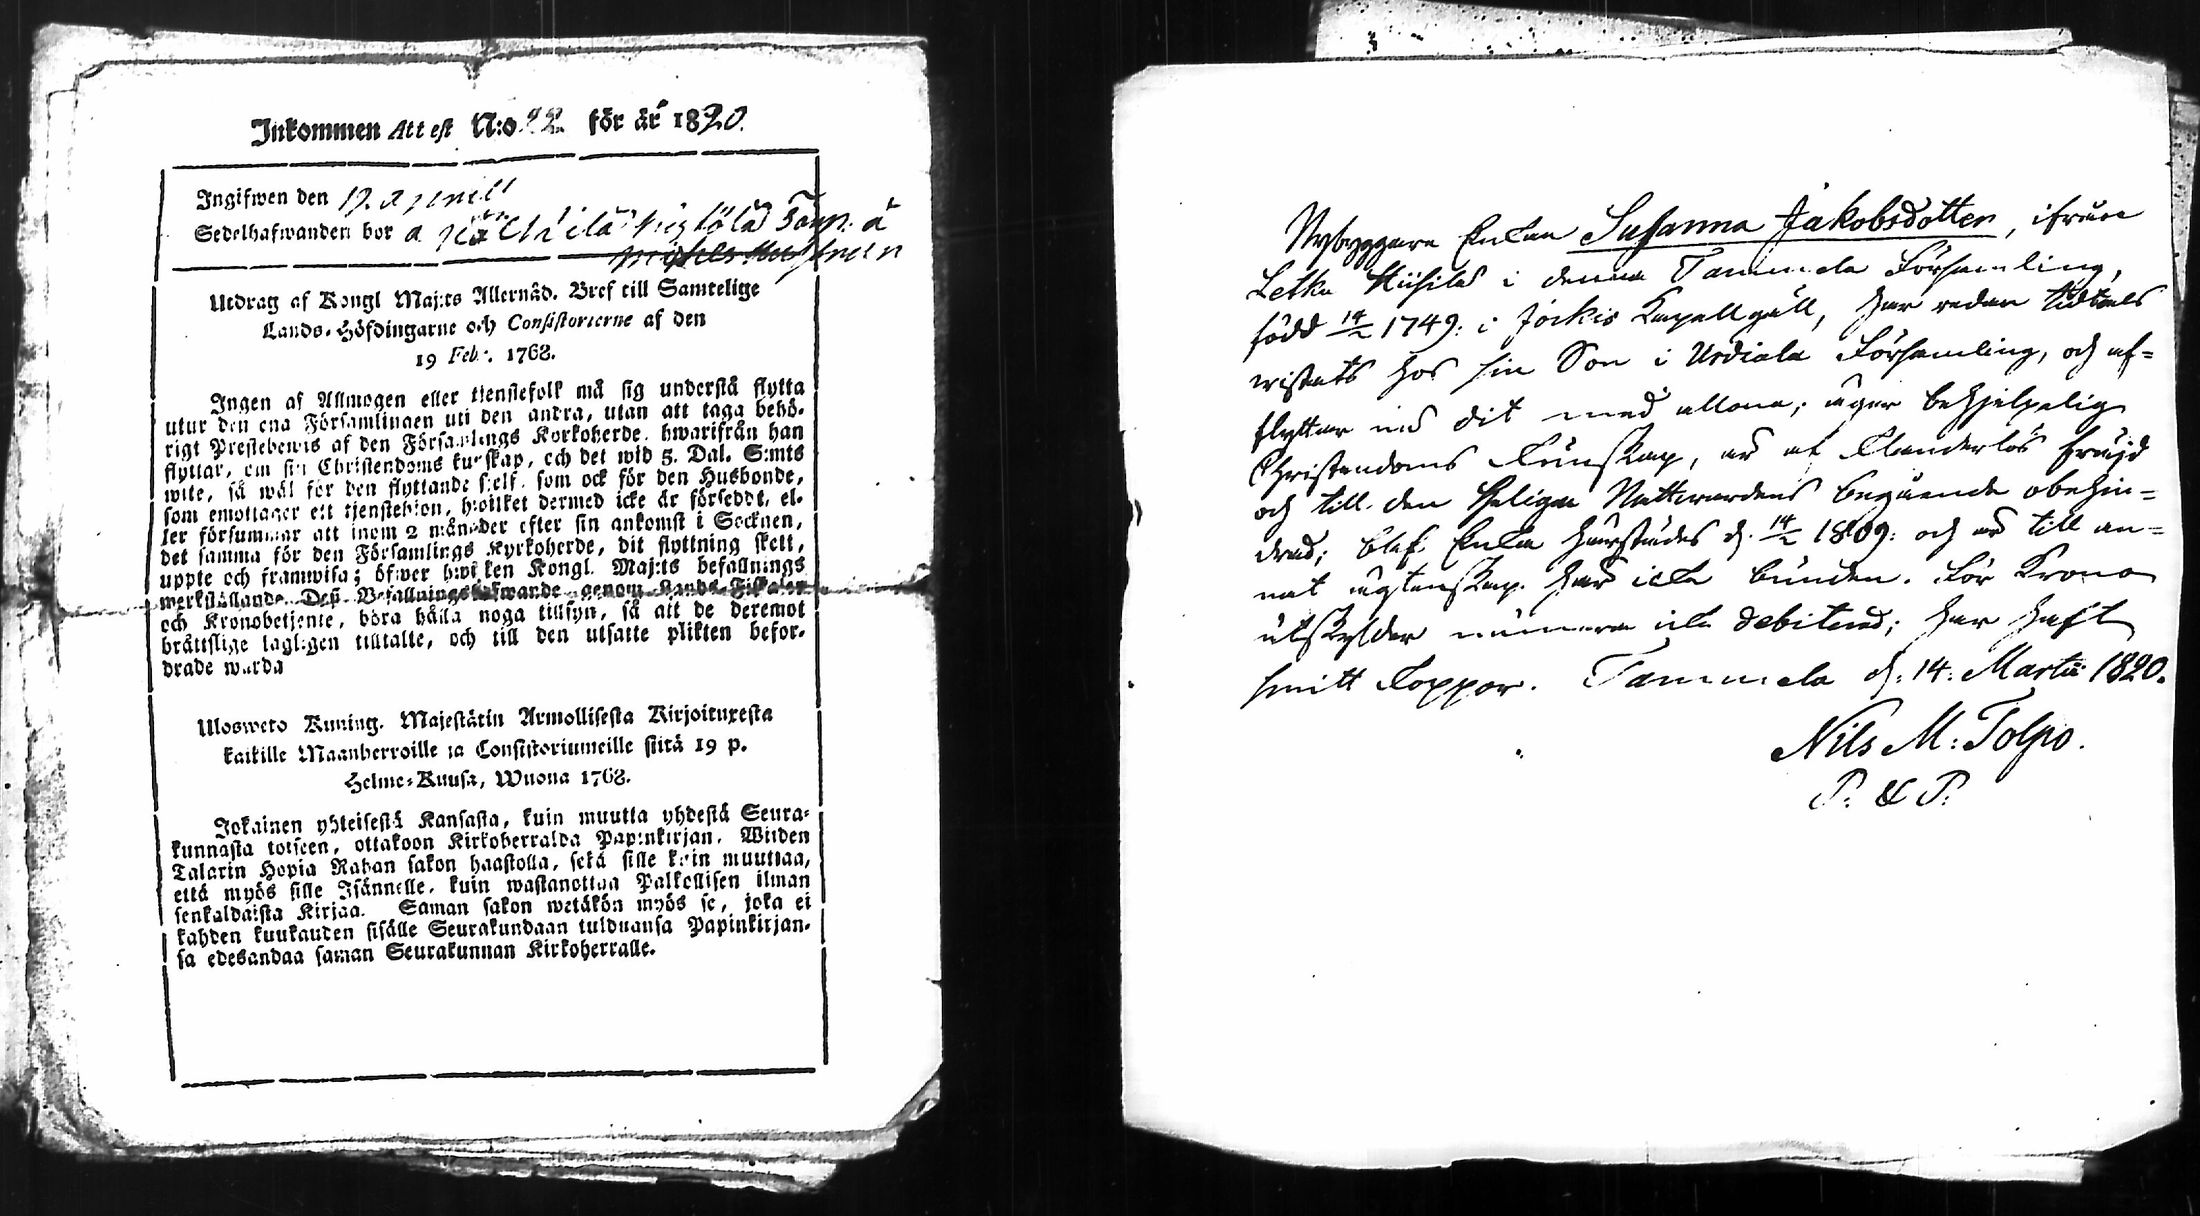 Inkommen Attest N:o 22. för år 1820.
Ingifwen den 19. aprill
Sedelhafwanden bor a
Utdrag af Kongl Maj:ts Allernåd. Bref till Samtelige
Lands-Höfdingarne och Consistorierne af den
19 Feb:. 1768.
Ingen af Allmogen eller tjenstefolk må sig understå flytta
utur den ena Församlingen uti den andra, utan att taga behö-
rigt Prestebewis af den Församlings Kyrkoherde, hwarifrån han
flyttar, om sin Christendoms kunskap, och det wid 5. Dal. S:mts
wite, så wäl för den flyttande sielf, som ock för den Husbonde,
som emottager ett tjenstehion, hwilket dermed icke är försedt, el-
ler försummar att inom 2 månader efter sin ankomst i Socknen,
det samma för den Församlings Kyrkoherde, dit flyttning skett,
uppte och framwisa; öfwer hwilken Kongl. Maj:ts befallnings
werkställande Deß Befallningshafwande genom Lands-Fiskaler
och Kronobetjente, böra hålla noga tillsyn, så att de deremot
bråttslige lagligen tilltalte, och till den utsatte plikten befor-
drade warda
Ulosweto Kuning. Majestätin Armollisesta Kirjoituxesta
kaikille Maanherroille ja Consistoriumeille siitä 19 p.
Helme-Kuusa, Wuona 1768.
Jokainen yhteisestä Kansasta, kuin muutta yhdestä Seura-
kunnasta toiseen, ottakoon Kirkoherralda Papinkirjan, Wiiden
Talarin Hopia Rahan sakon haastolla, sekä sille kuin muuttaa,
että myös sille Isännelle, kuin wastanottaa Palkollisen ilman
senkaldaista Kirjaa. Saman sakon wetäkön myös se, joka ei
kahden kuukauden sisälle Seurakundaan tulduansa Papinkirjan-
sa edesandaa saman Seurakunnan Kirkoherralle.
Nybyggare Enkan Susanna Jakobsdotter, ifrån
Letku Hiisilä i denna Tammela Församling,
född 14/2 1749: i Jockis Kapellgäll, har redan tidtals
wistats hos sin Son i Urdiala Församling, och af-
flyttar nu dit med allone; äger behjelpelig
Christendoms Kunskap, är af Klanderlös frejd
och till den Heliga Nattwardens begående obehin-
drad; blef Enka härstädes d. 14/2 1809: och är till an-
nat ägtenskap här icke bunden. För Krono
utskylder numera icke debiterad; har haft
smitt koppor. Tammela d: 14: Martii 1820.
Nils M: Tolpo.
P. & P.